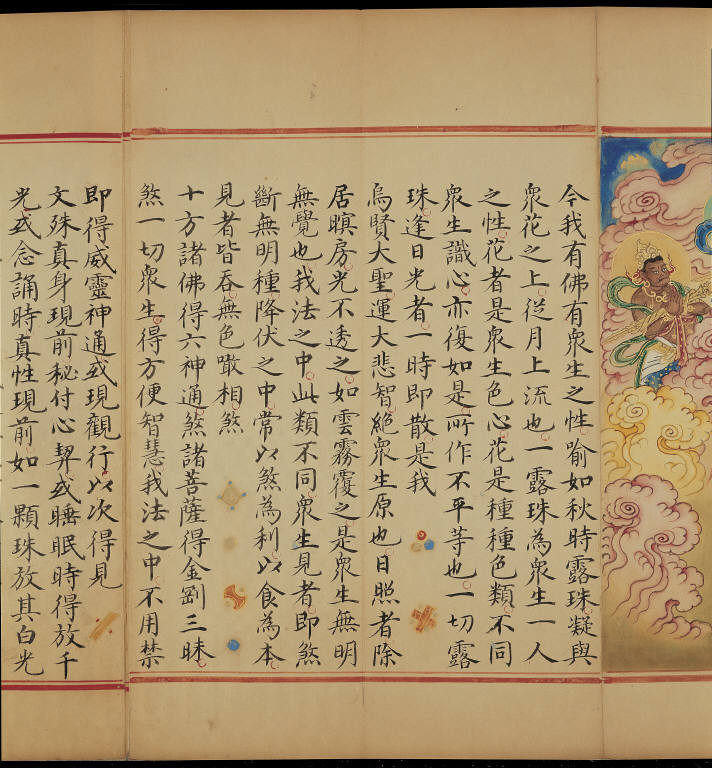 今我有佛有衆生之性喻如秋時露珠凝與
衆花之上從月上流也一露珠為衆生一人
之性花者是衆生色心花是種種色類不同
衆生識心亦復如是所作不平等也一切露
珠逢日光者一時即散是我
烏賢大聖運大悲智絕衆生原也日照者除
居暝房光不透之如雲霧覆之是衆生無明
無覺也我法之中此類不同衆生見者即煞
斷無明種降伏之中常以煞為利以食為本
見者皆吞無色噉相煞
十方諸佛得六神通煞諸菩薩得金剛三昧
煞一切衆生得方便智慧我法之中不用禁
即得威靈神通或現觀行以次得見
文殊真身現前秘付心契或睡眠時得放千
光或念誦時真性現前如一顆珠放其白光